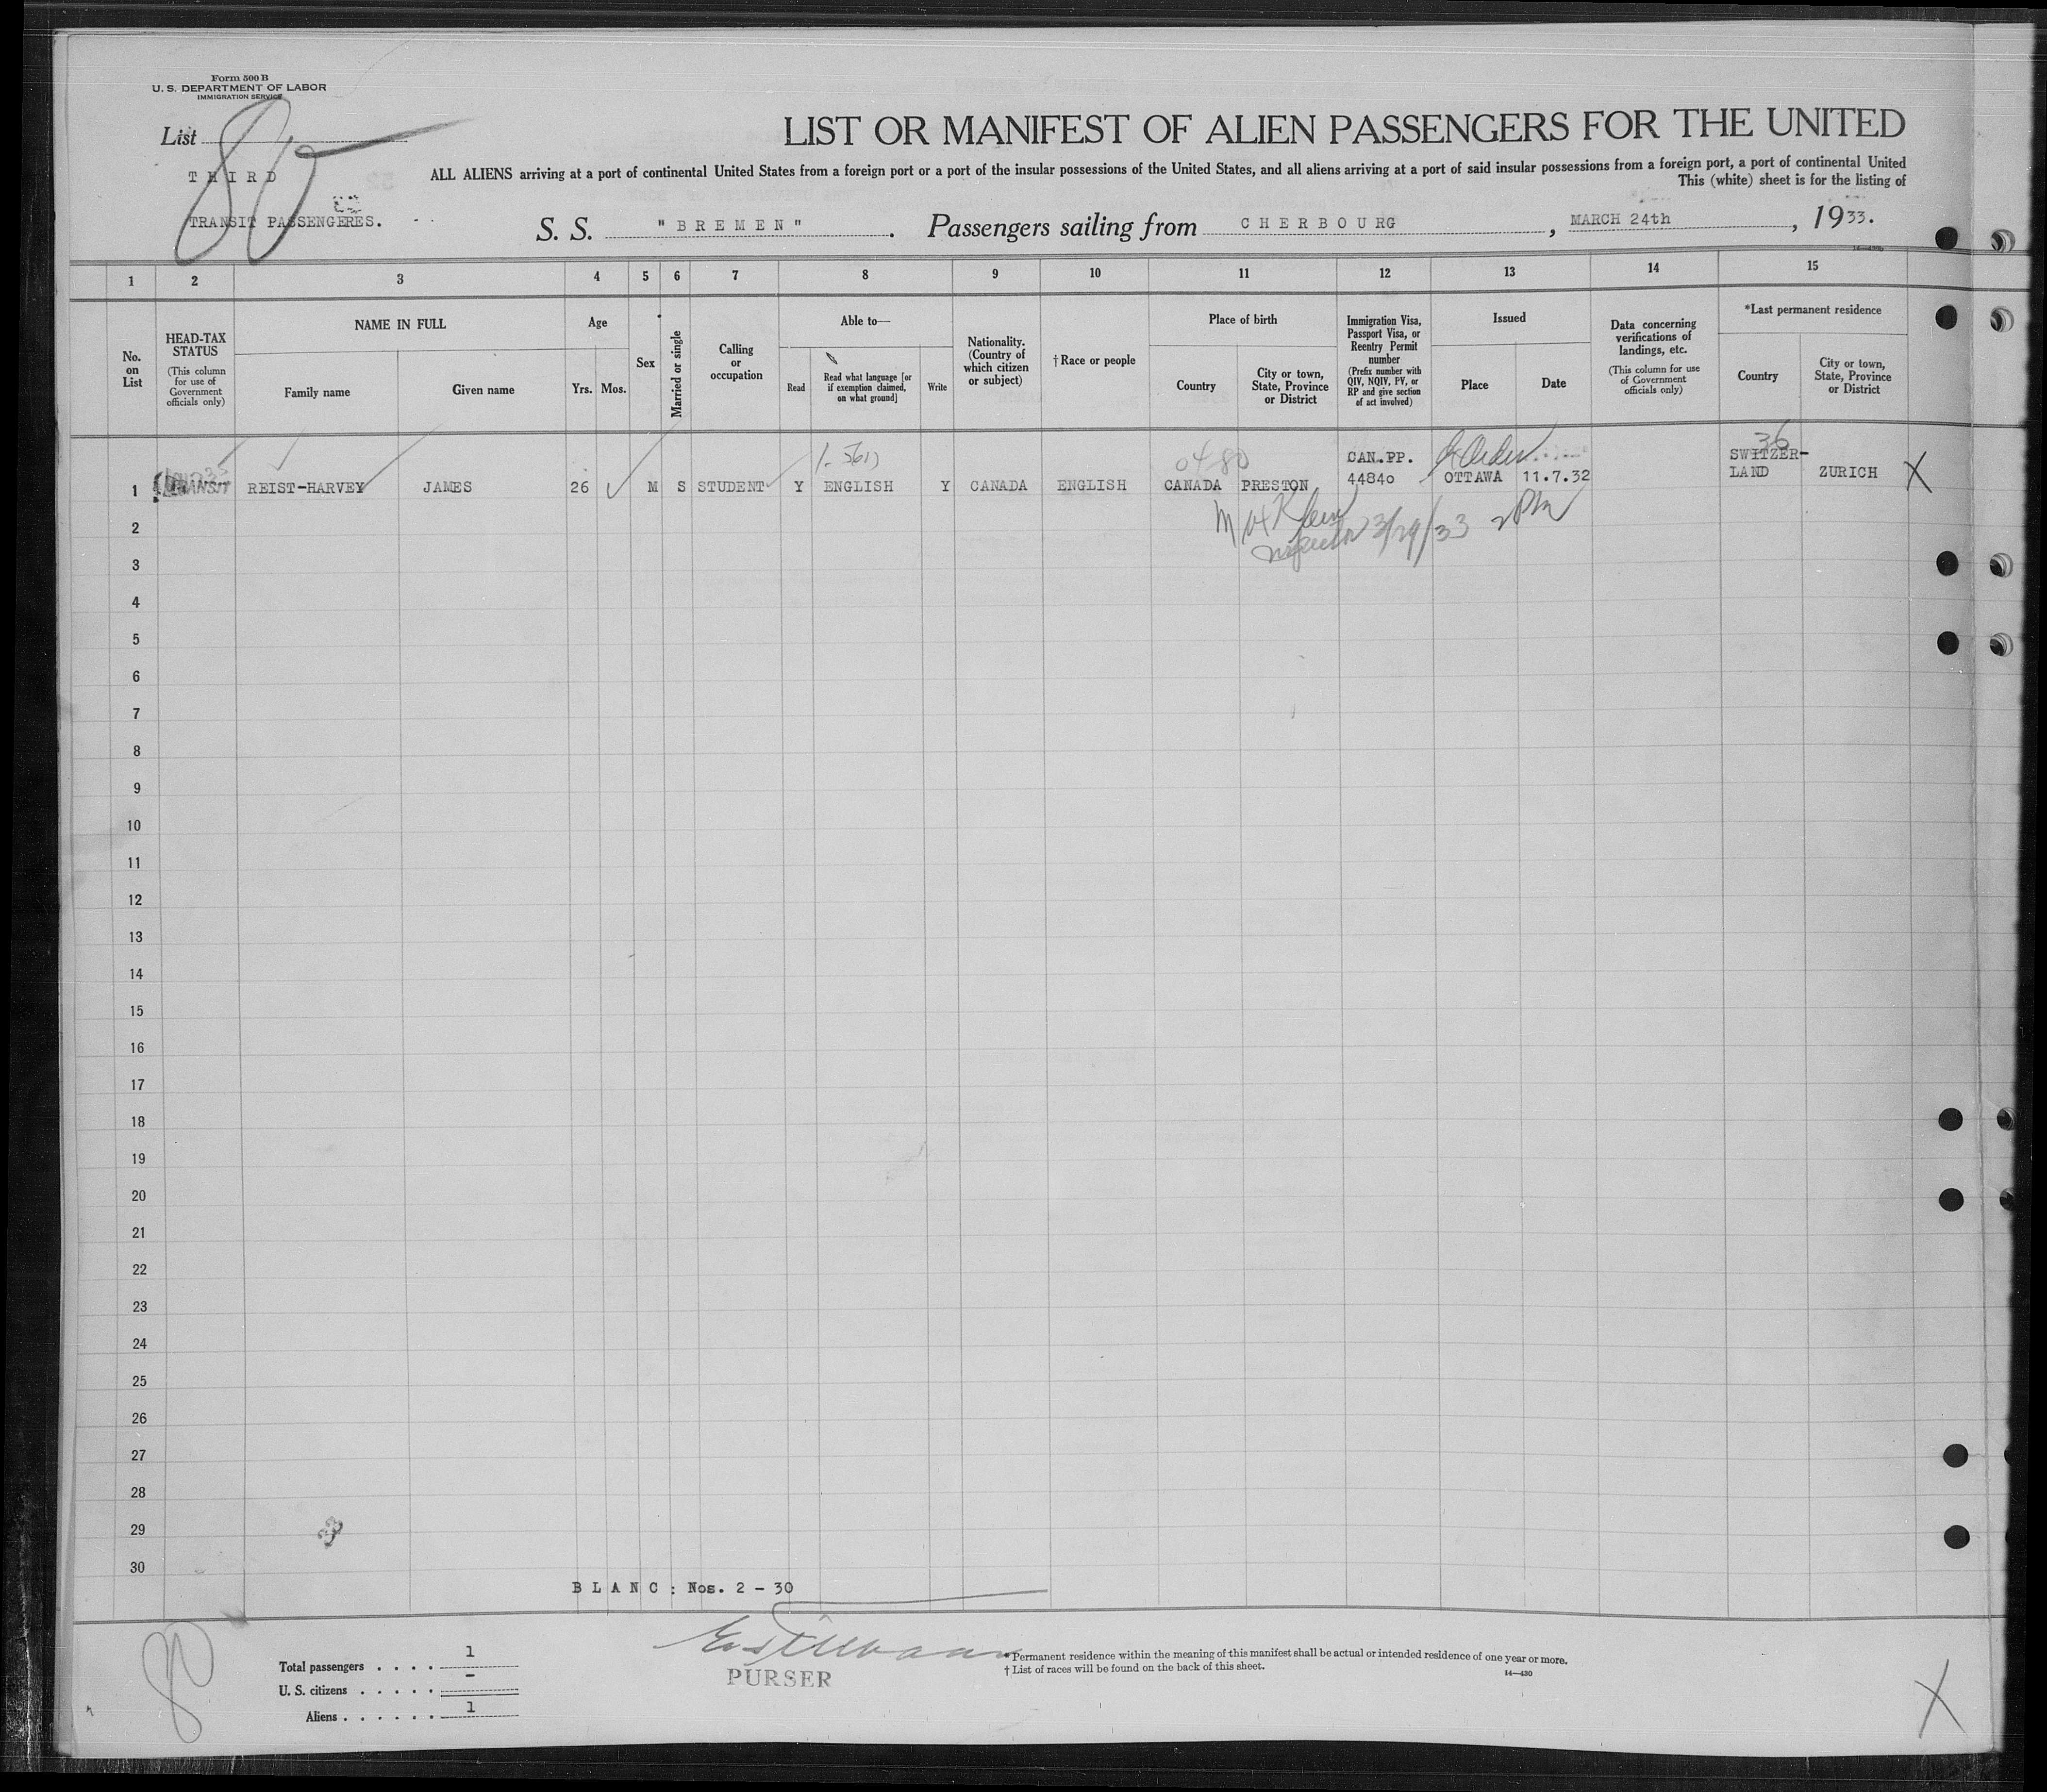 Form 500 B
U. S. DEPARTMENT OF LABOR
IMMIGRATION SERVICE
List 80
THIRD
TRANSIT PASSENGERES.
LIST OR MANIFEST OF ALIEN PASSENGERS FOR THE UNITED
ALL ALIENS arriving at a port of continental United States from a foreign port or a port of the insular possessions of the United States, and all aliens arriving at a port of said insular possessions from a foreign port, a port of continental United
This (white) sheet is for the listing of
S. S. "BREMEN". Passengers sailing from CHERBOURG, MARCH 24th, 1933.
1 2 3 4 5 6 7 8 9 10 11 12 13 14 15
No. on List
HEAD-TAX STATUS
(This column for use of Government officials only)
NAME IN FULL
Family name
Given name
Age
Yrs. Mos.
Sex
Married or single
Calling or occupation
Able to—
Read
Read what language [or if exemption claimed, on what ground]
Write
Nationality. (Country of which citizen or subject)
†Race or people
Place of birth
Country
City or town, State, Province or District
Immigration Visa, Passport Visa, or Reentry Permit number
(Prefix number with QIV, NQIV, PV, or RP and give section of act involved)
Issued
Place
Date
Data concerning verifications of landings, etc.
(This column for use of Government officials only)
*Last permanent residence
Country
City or town, State, Province or District
04-80
36
1 TRANSIT REIST-HARVEY JAMES 26 M S STUDENT Y ENGLISH Y CANADA ENGLISH CANADA PRESTON CAN.PP. 44840 OTTAWA 11.7.32 SWITZER-LAND ZURICH X
Max Klein
Inspector 3/29/33 2 PM
2
3
4
5
6
7
8
9
10
11
12
13
14
15
16
17
18
19
20
21
22
23
24
25
26
27
28
29
30
BLANC: Nos. 2 - 30
80
Total passengers . . . . 1
U. S. citizens . . . . . -
Aliens . . . . . . 1
PURSER
*Permanent residence within the meaning of this manifest shall be actual or intended residence of one year or more.
†List of races will be found on the back of this sheet.
14—430
X